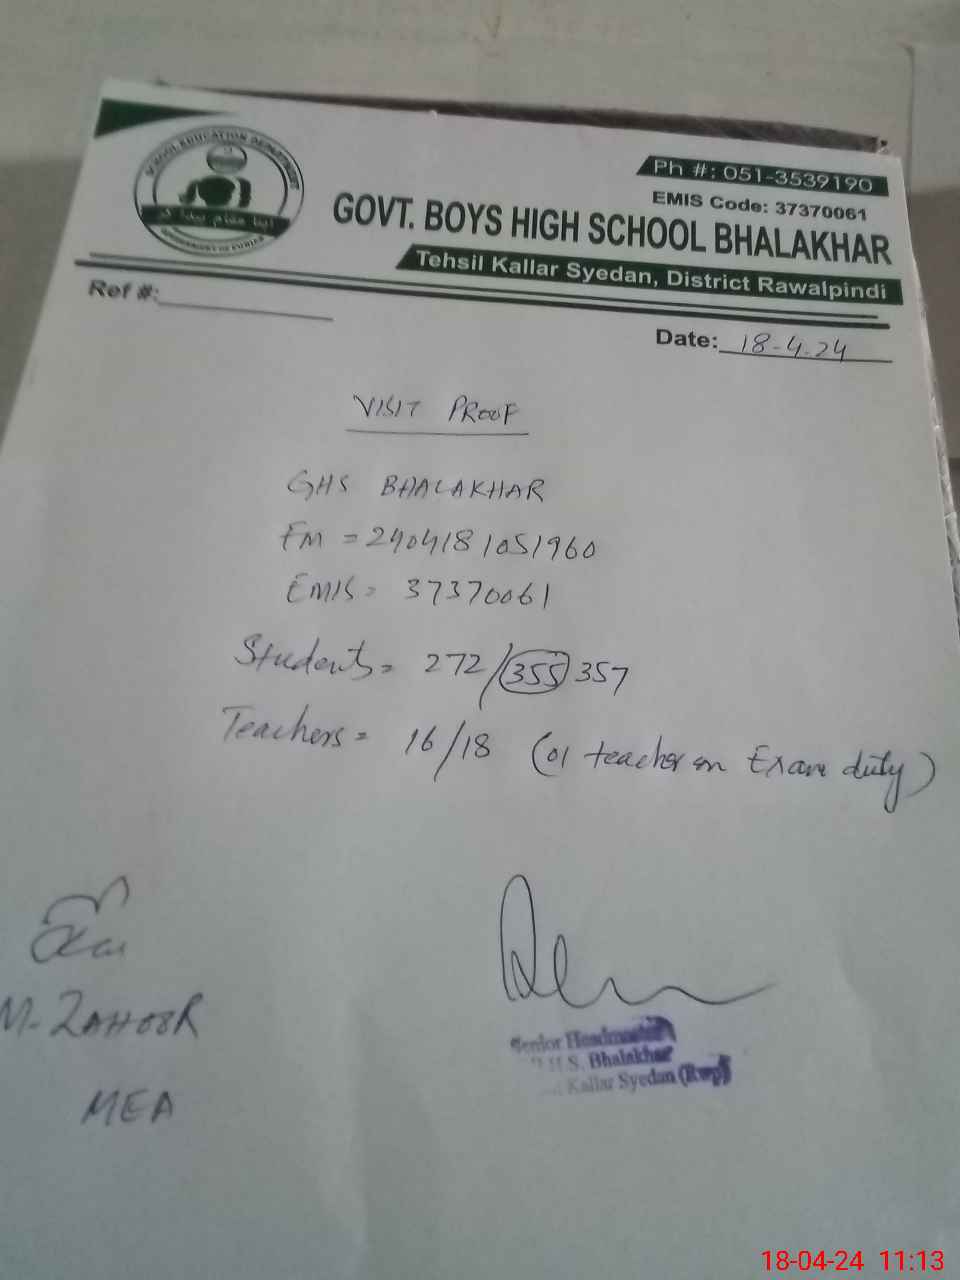 SCHOOL EDUCATION DEPARTMENT
GOVERNMENT OF PUNJAB
Ph #: 051-3539190
EMIS Code: 37370061
GOVT. BOYS HIGH SCHOOL BHALAKHAR
Tehsil Kallar Syedan, District Rawalpindi
Ref #:
Date: 18-4-24
VISIT PROOF
GHS BHALAKHAR
FM = 2404181051960
EMIS = 37370061
Students = 272/355 357
Teachers = 16/18 (01 teacher on Exam duty)
M. ZAHOOR
MEA
Senior Headmaster
H.S. Bhalakhar
Kallar Syedan (Rwp)
18-04-24 11:13